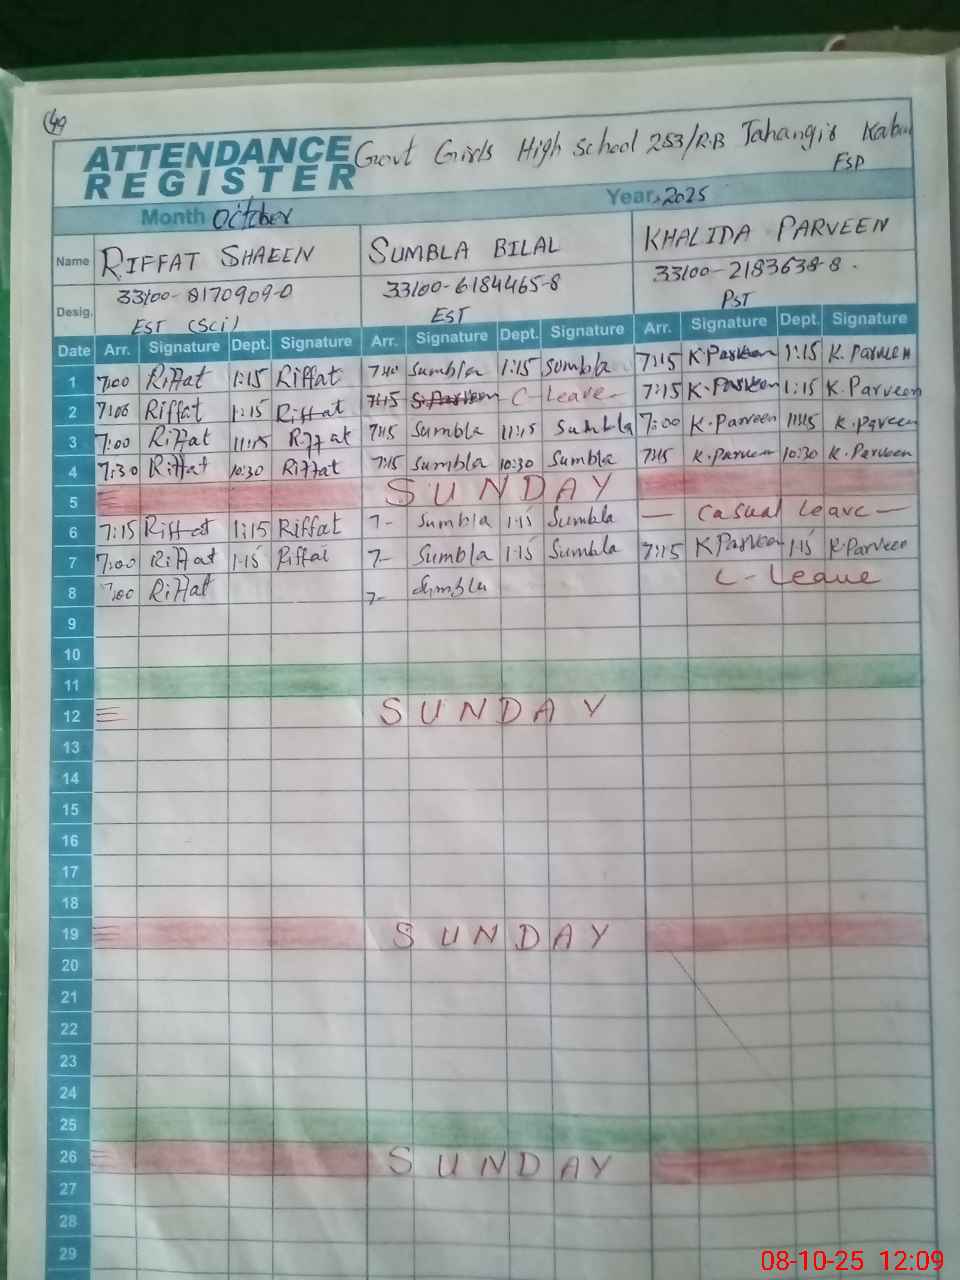 49
ATTENDANCE REGISTER Govt Girls High School 253/R.B Jahangir
FSD
Month October Year, 2025
Name RIFFAT SHAEEN SUMBLA BILAL KHALIDA PARVEEN
Desig. 33100-8170909-0 33100-6184465-8 33100-2183638-8.
EST (Sci) EST PST
Date Arr. Signature Dept. Signature Arr. Signature Dept. Signature Arr. Signature Dept. Signature
1 7:00 Riffat 1:15 Riffat Sumbla 1:15 Sumbla 7:15 K.Parveen 1:15 K. Parveen
2 7:00 Riffat 1:15 Riffat 7:15 C-Leave- 7:15 K.Parveen 1:15 K.Parveen
3 7:00 Riffat 11:15 Riffat 7:15 Sumbla 11:15 Sumbla 7:00 K.Parveen 11:15 K.Parveen
4 7:30 Riffat 10:30 Riffat 7:15 Sumbla 10:30 Sumbla 7:15 K.Parveen 10:30 K.Parveen
5 SUNDAY
6 7:15 Riffat 1:15 Riffat 7- Sumbla 1:15 Sumbla — Casual Leave —
7 7:00 Riffat 1:15 Riffat 7- Sumbla 1:15 Sumbla 7:15 K Parveen 1:15 K.Parveen
8 7:00 Riffat 7- Sumbla C-Leave
9
10
11
12 SUNDAY
13
14
15
16
17
18
19 SUNDAY
20
21
22
23
24
25
26 SUNDAY
27
28
29
08-10-25 12:09